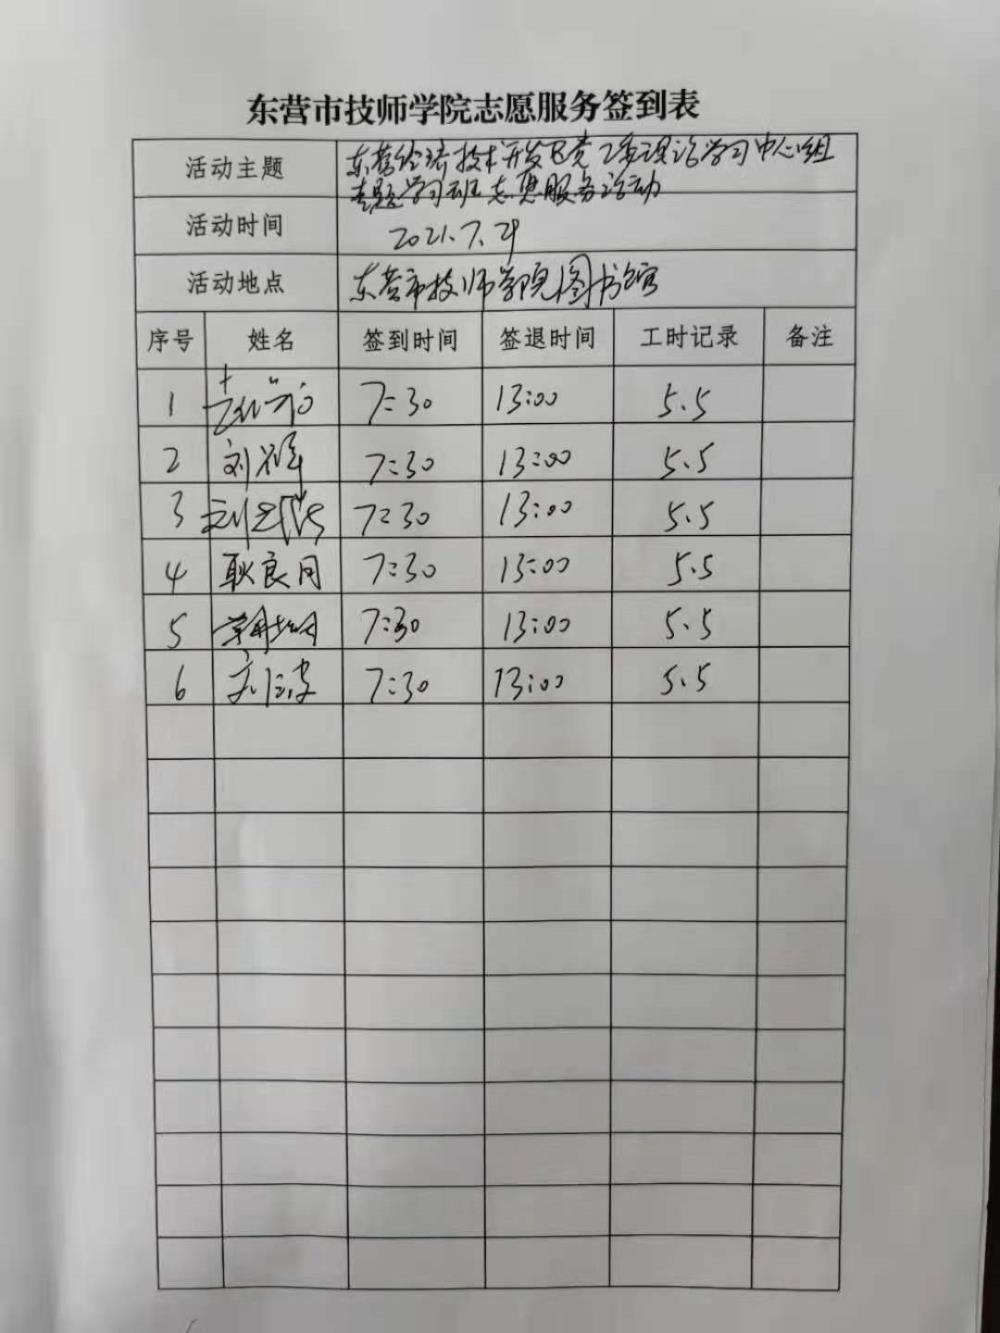 东营市技师学院志愿服务签到表
活动主题 东营经济技术开发区党工委理论学习中心组
专题学习班志愿服务活动
活动时间 2021.7.29
活动地点 东营市技师学院图书馆
序号 姓名 签到时间 签退时间 工时记录 备注
1 7:30 13:00 5.5
2 刘 7:30 13:00 5.5
3 刘 7:30 13:00 5.5
4 耿良同 7:30 13:00 5.5
5 7:30 13:00 5.5
6 7:30 13:00 5.5